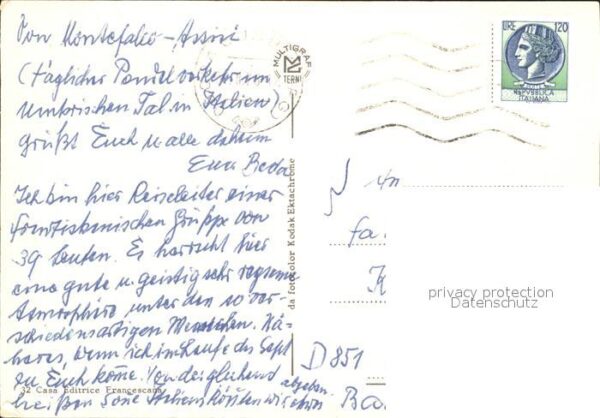 Von Montefalco - Assisi
(täglicher Pendelverkehr im
umbrischen Tal in Italien)
grüßt Euch u alle daheim
Euer Beda
Ich bin hier Reiseleiter einer
franziskanischen Gruppe von
39 Leuten. Es herrscht hier
eine gute u. geistig sehr regsame
Atmosphäre unter den so ver-
schiedenartigen Menschen. Nä-
heres, wenn ich im Laufe des Sept
zu Euch komme. Von der glühend
heißen Sonne Italiens
32 Casa Editrice Francescana
MULTIGRAF
TERNI
da fotocolor Kodak Ektachrome
LIRE 120
REPVBBLICA
ITALIANA
An
Fa.
K
privacy protection
Datenschutz
D 851
Ba